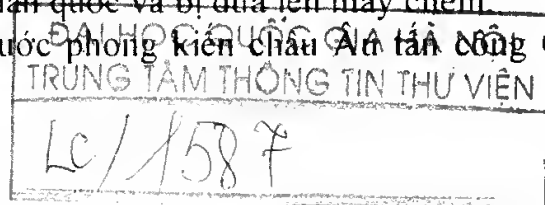 quốc và bị đưa lên máy chém.
phong kiến châu Âu tấn công
ĐẠI HỌC QUỐC GIA HÀ NỘI
TRUNG TÂM THÔNG TIN THƯ VIỆN
LC/1587